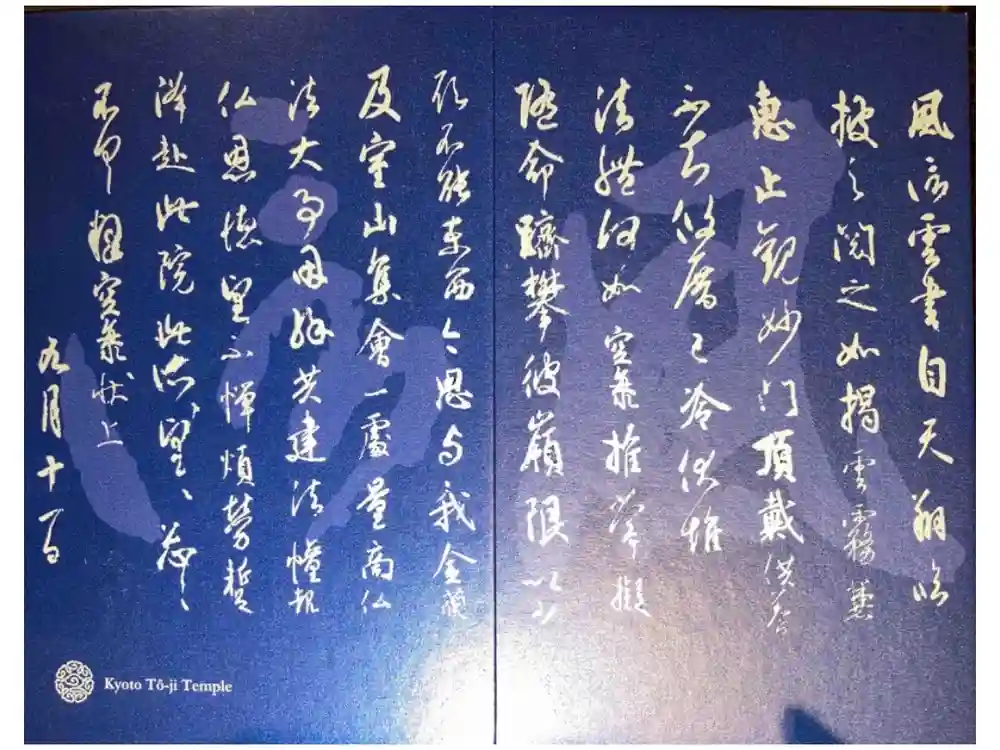 風信雲書自天翔臨
披之閲之如掲雲霧兼
恵止觀妙門頂戴供養
不知攸厝已冷伏惟
法體何如空海推常擬
隨命躋攀彼嶺限以少
願不能東西今思与我金蘭
及室山集會一處量商仏
法大事因縁共建法幢報
仏恩徳望不憚煩勞蹔
降赴此院此所々望々忩々
不具釋空海状上
九月十一日
Kyoto Tô-ji Temple